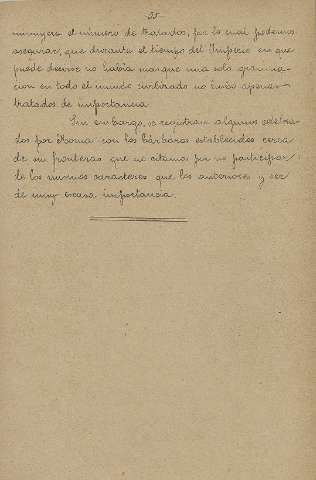 35
minuyera el número de tratados, por lo cual podemos
asegurar, que durante el tiempo del Imperio en que
puede decirse no había mas que una sola gran na-
cion en todo el mundo civilizado no hubo apenas
tratados de importancia
Sin embargo, se registran algunos celebra-
dos por Roma con los bárbaros establecidos cerca
de sus fronteras que no citamos por no participar
de los mismos caracteres que los anteriores y ser
de muy escasa importancia.